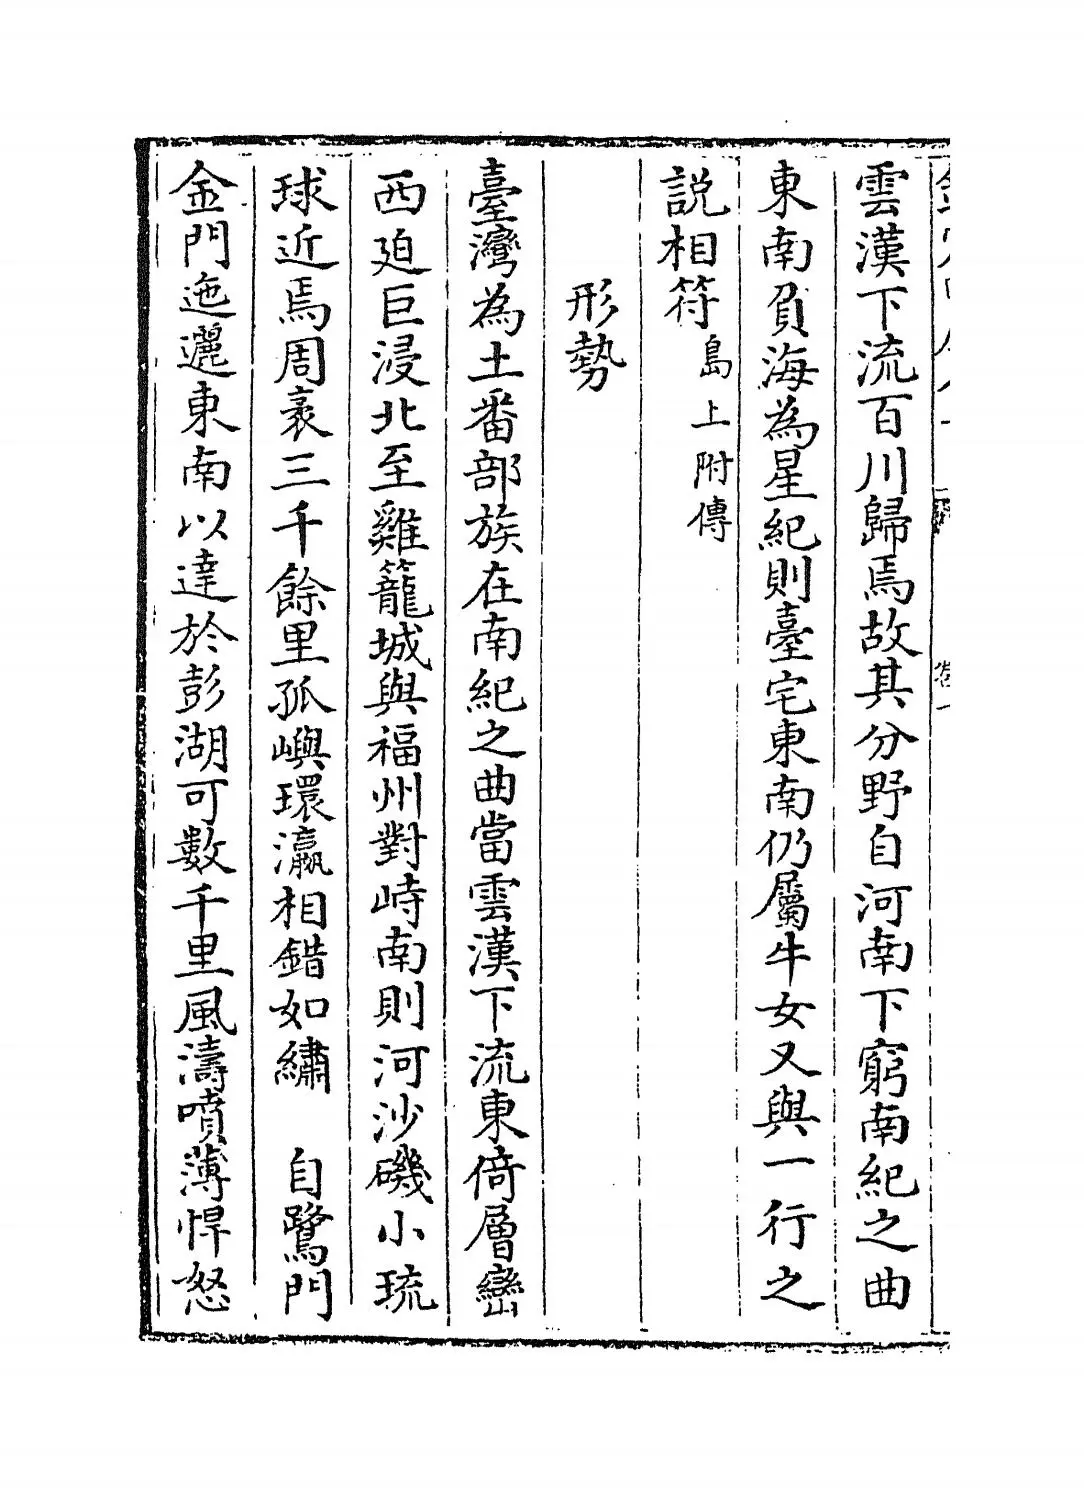 雲漢下流百川歸焉故其分野自河南下窮南紀之曲
東南負海為星紀則臺宅東南仍屬牛女又與一行之
説相符島上附傳
形勢
臺灣為土番部族在南紀之曲當雲漢下流東倚層巒
西廹巨浸北至雞籠城與福州對峙南則河沙磯小琉
球近焉周袤三千餘里孤嶼環瀛相錯如繡　自鷺門
金門迤邐東南以達於彭湖可數千里風濤噴薄悍怒